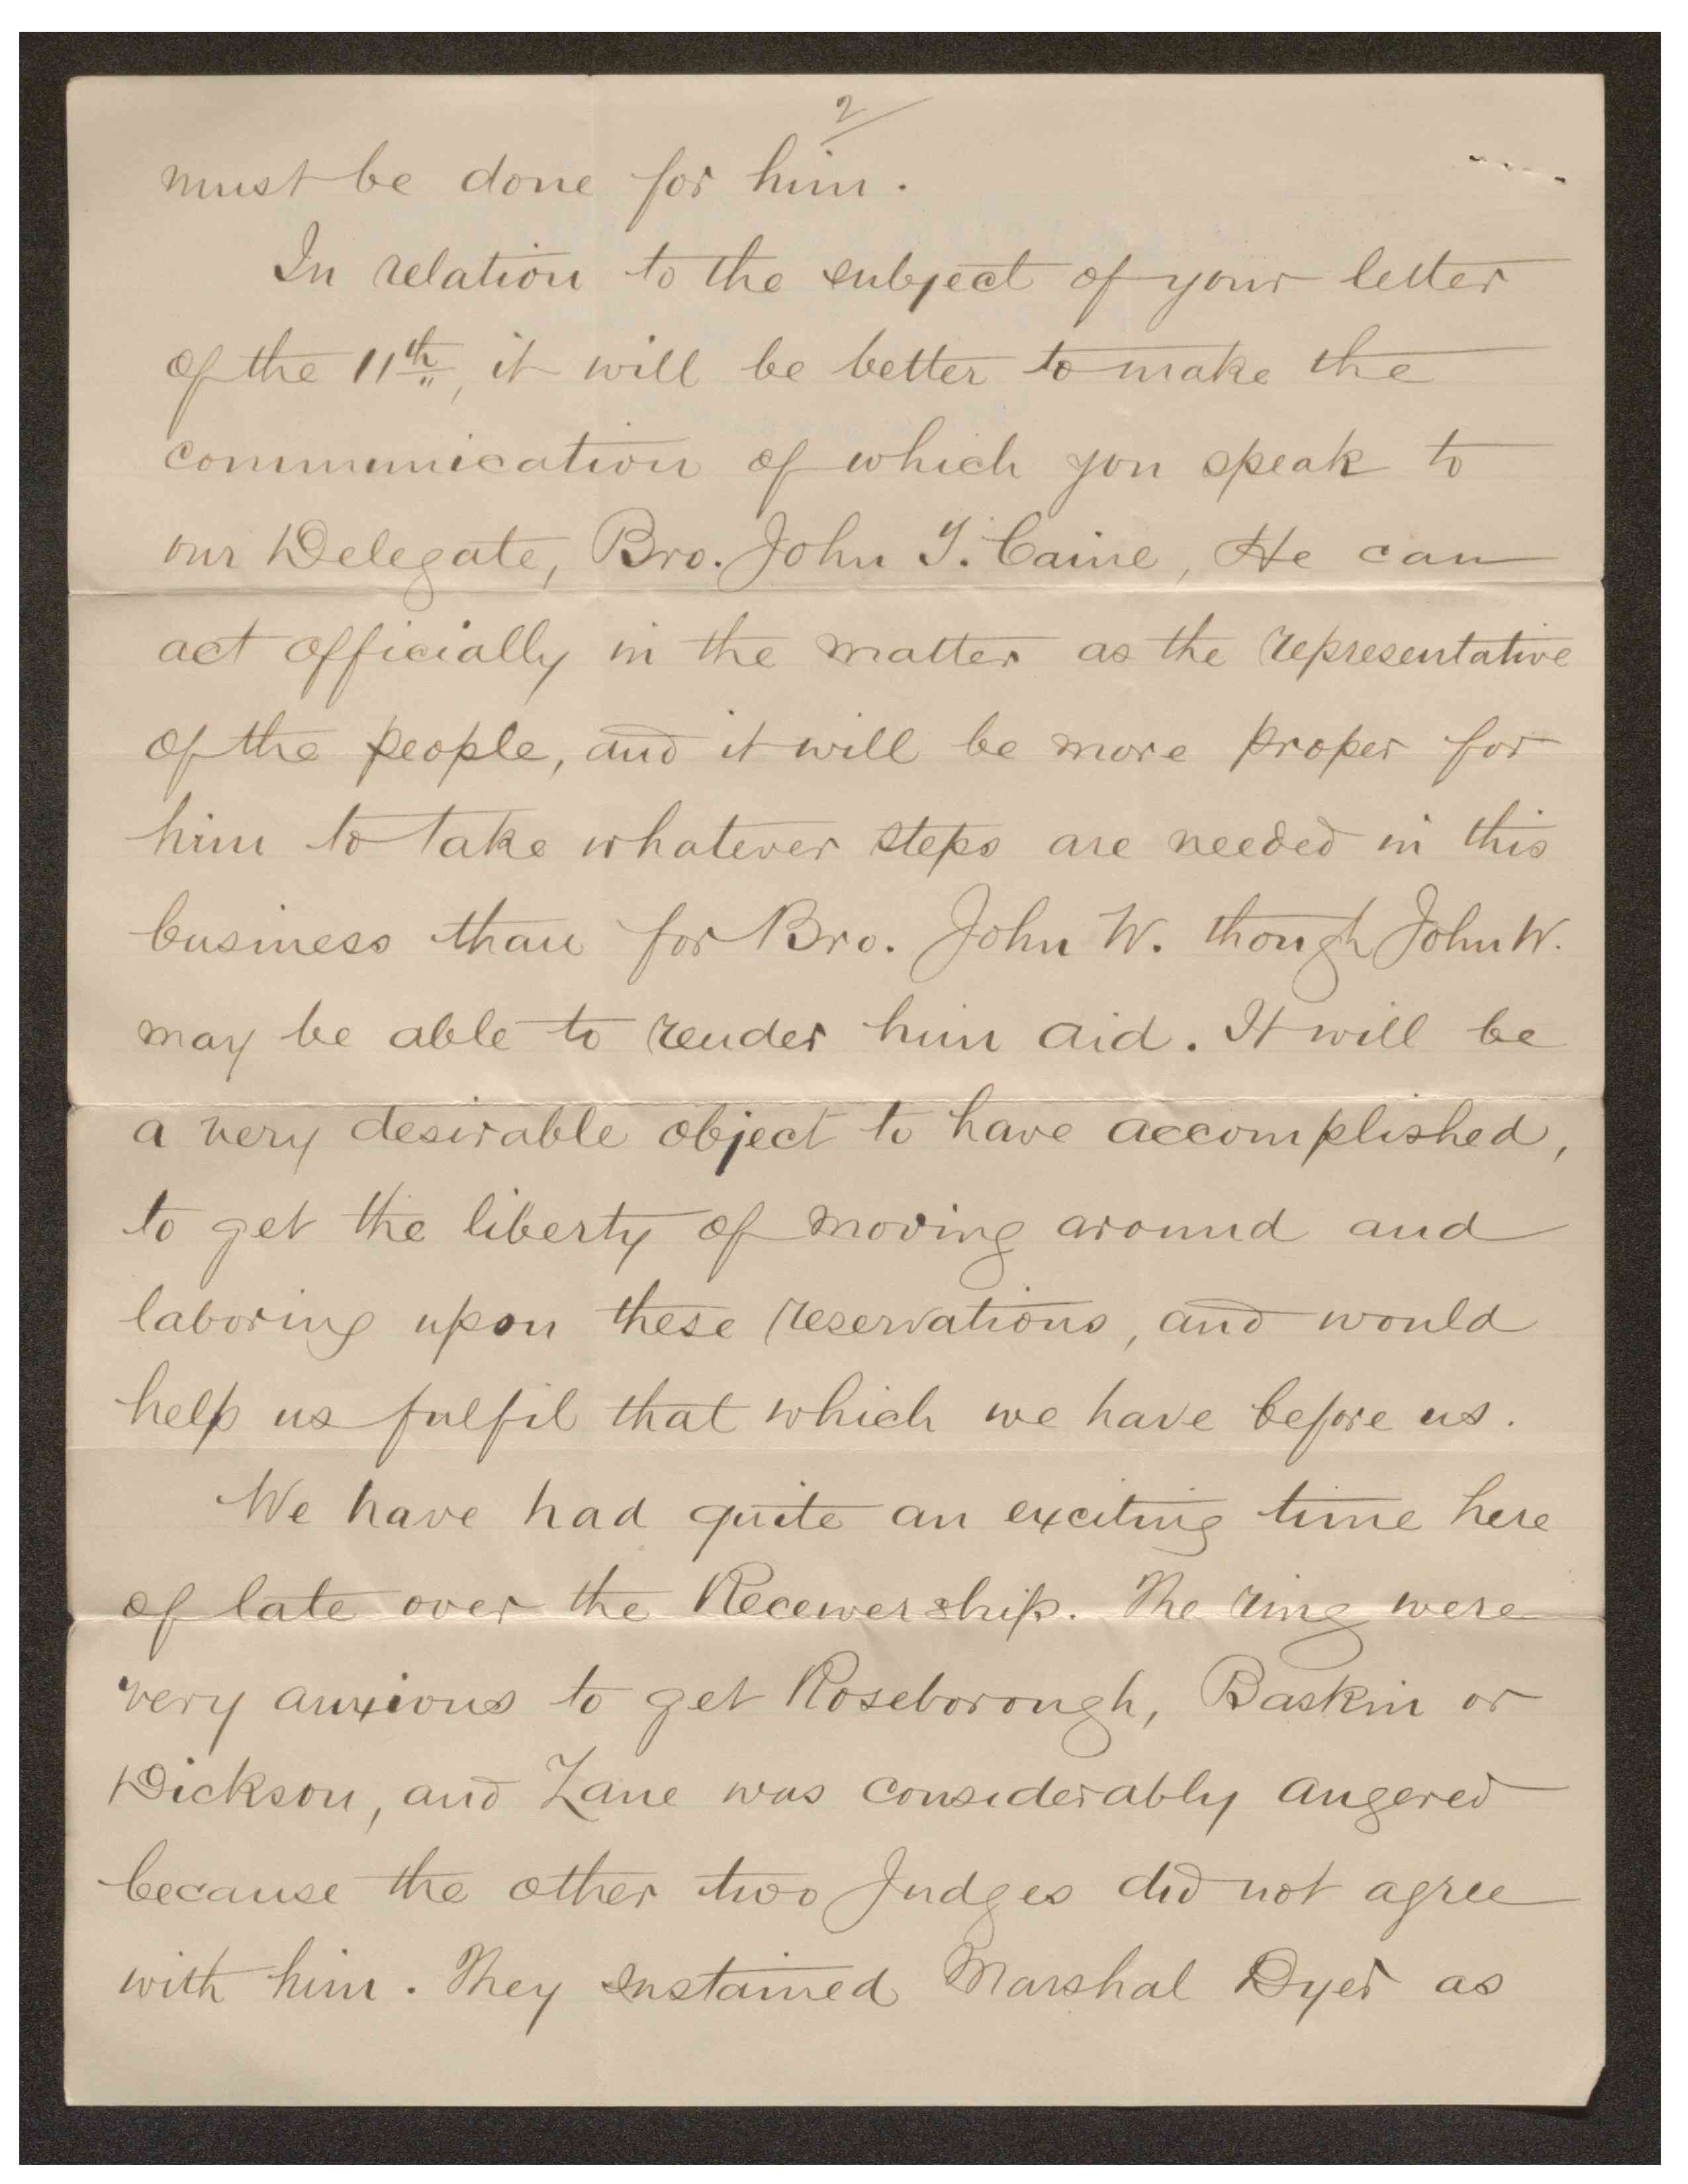 2
must be done for him.
In relation to the subject of your letter
of the 11th, it will be better to make the
communication of which you speak to
our Delegate, Bro. John T. Caine, He can
act officially in the matter as the representative
of the people, and it will be more proper for
him to take whatever steps are needed in this
business than for Bro. John W. though John W.
may be able to render him aid. It will be
a very desirable object to have accomplished,
to get the liberty of moving around and
laboring upon these reservations, and would
help us fulfil that which we have before us.
We have had quite an exciting time here
of late over the Receivership. The ring were
very anxious to get Roseborough, Baskin or
Dickson, and Zane was considerably angered
because the other two Judges did not agree
with him. They sustained Marshal Dyer as